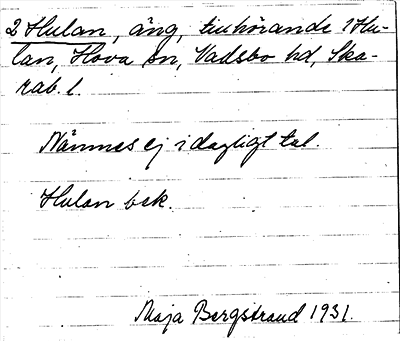 2 Hulan, äng, tillhörande 1 Hu-
lan, Hova sn, Vadsbo hd, Ska-
rab. l.
Nämnes ej i dagligt tal.
Hulan bek.
Maja Bergstrand 1931.